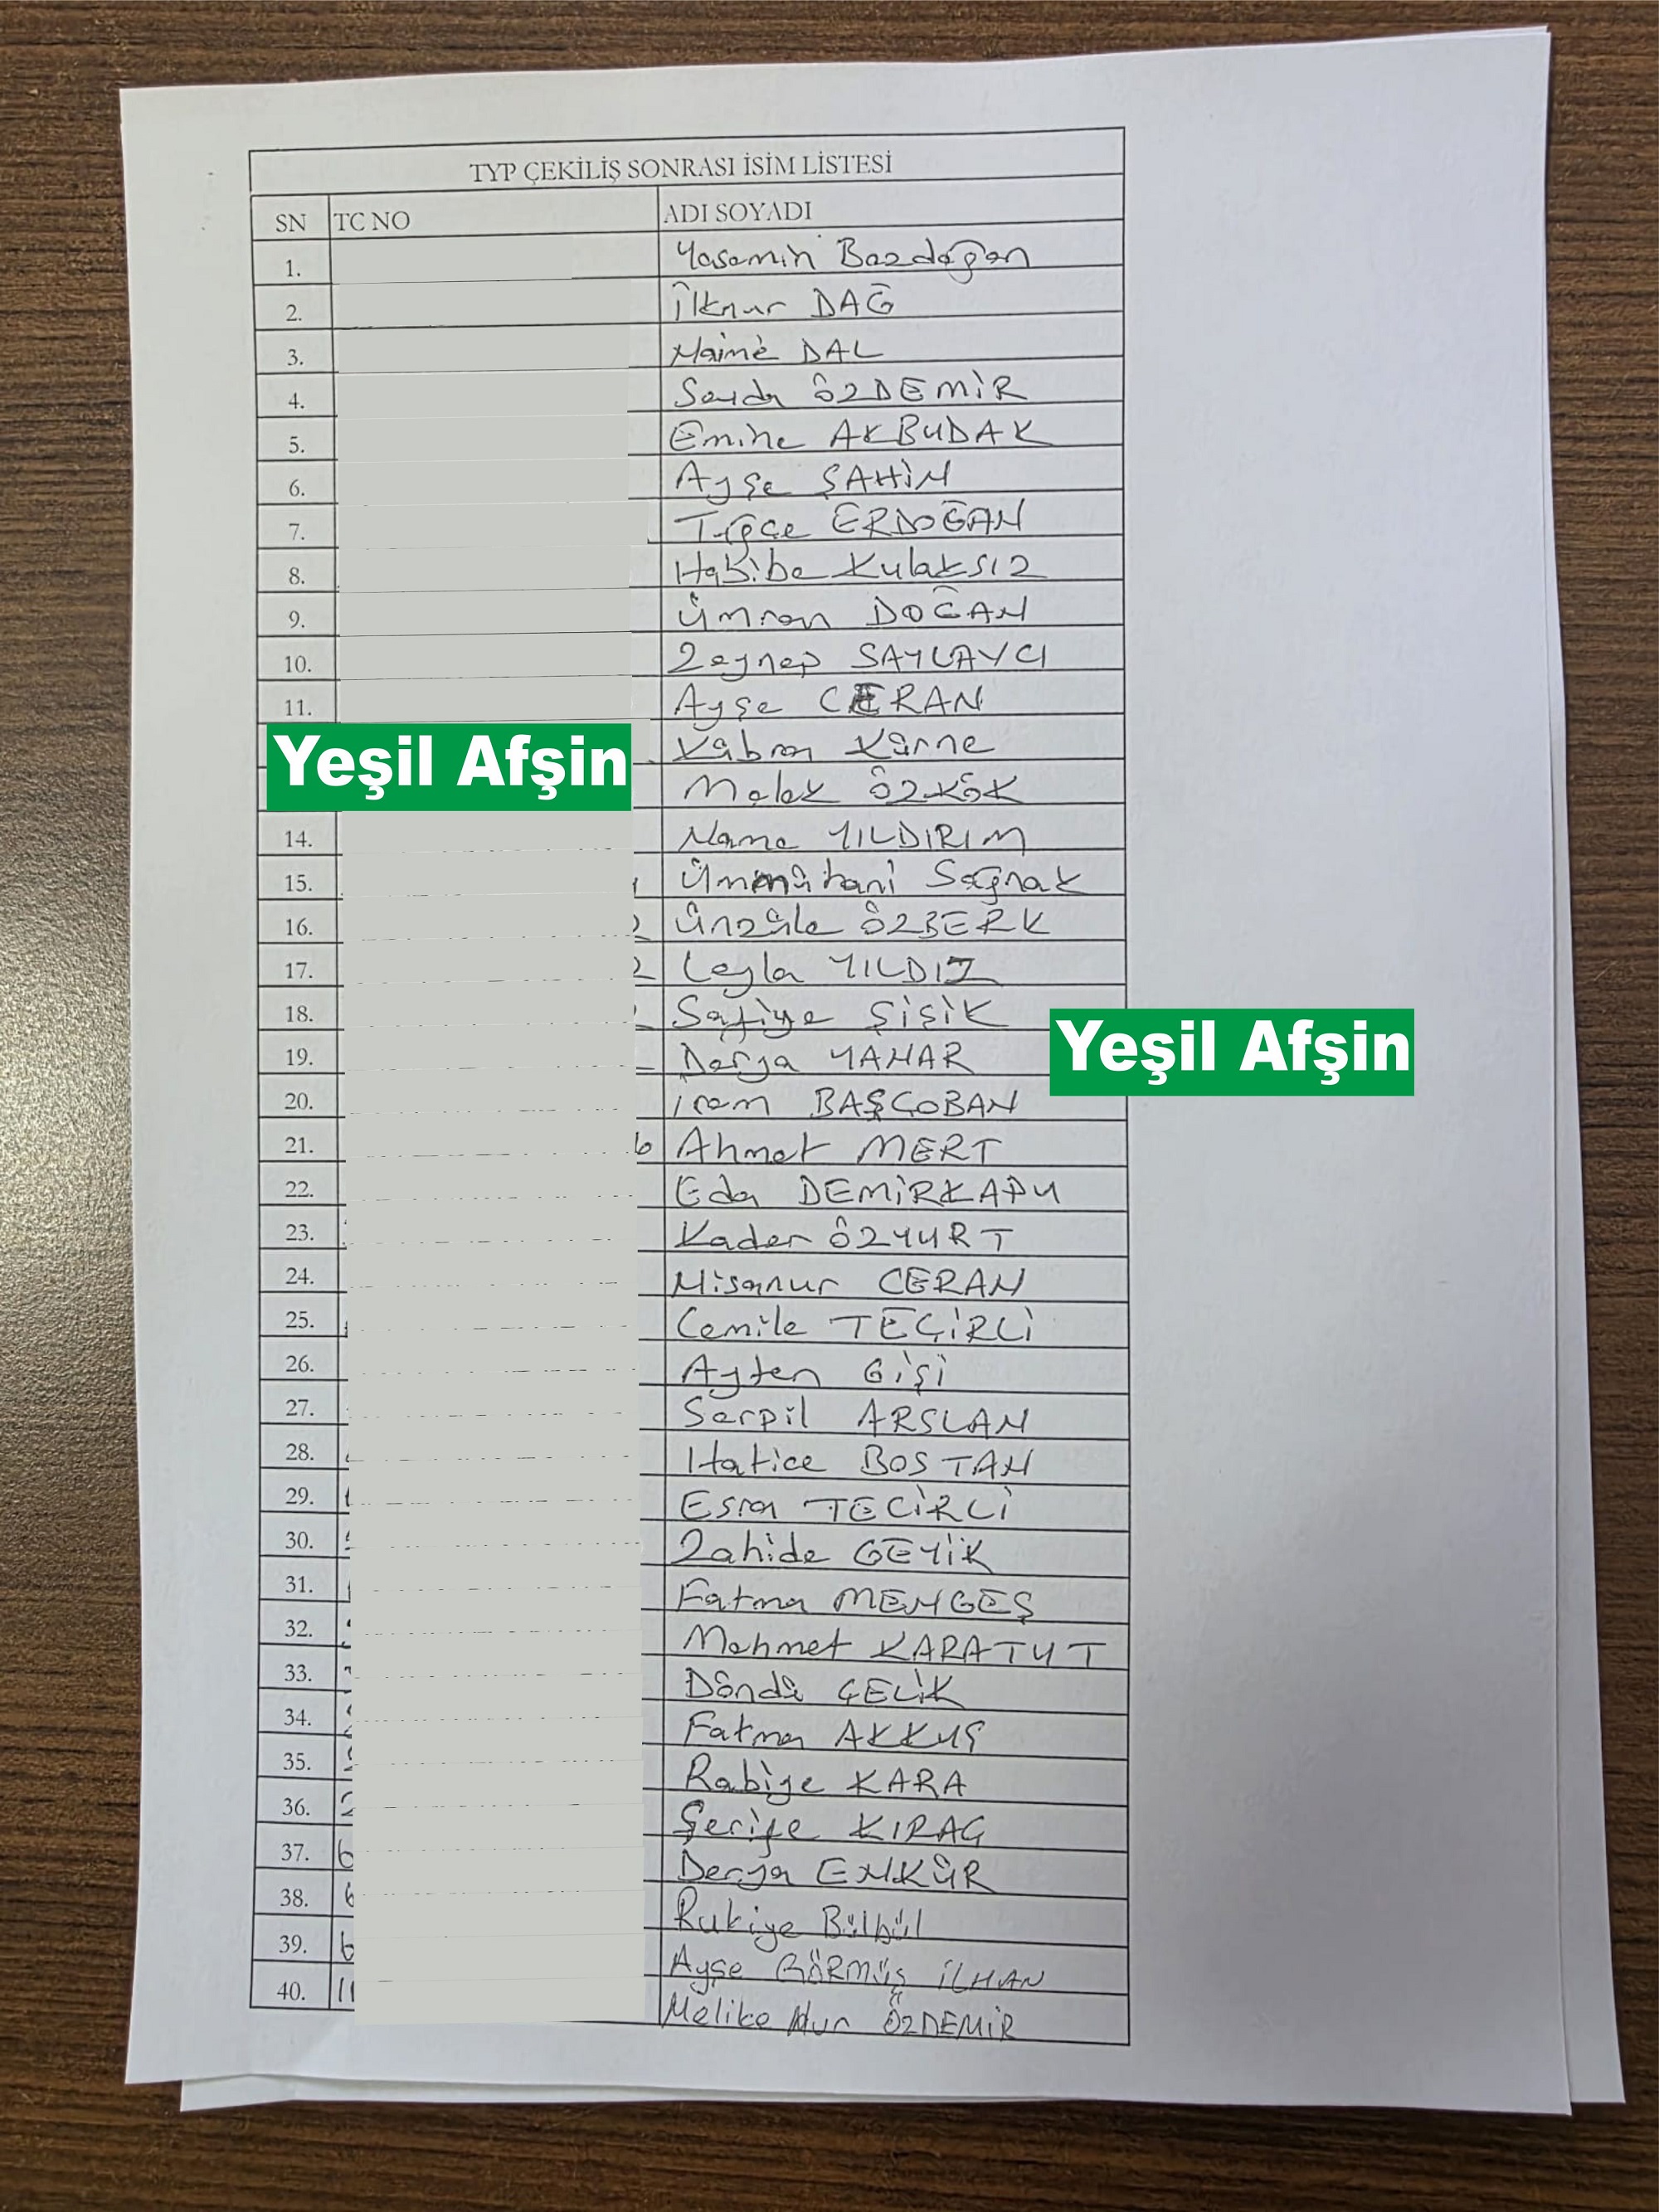 TYP ÇEKİLİŞ SONRASI İSİM LİSTESİ
SN TC NO ADI SOYADI
1. Yasemin Bozdoğan
2. İlknur DAĞ
3. Naime DAL
4. Seida ÖZDEMİR
5. Emine AKBUDAK
6. Ayşe ŞAHİN
7. Tuğçe ERDOĞAN
8. Habibe Kulaksız
9. Ümran DOĞAN
10. Zeynep SAYLAYCI
11. Ayşe CERAN
Yeşil Afşin
Kübra Kürne
Melek ÖZKÖK
14. Name YILDIRIM
15. Ümmühani Sağnak
16. Ünzüle ÖZBERK
17. Leyla YILDIZ
18. Safiye ŞİŞİK
Yeşil Afşin
19. Derya YANAR
20. irem BAŞÇOBAN
21. 6 Ahmet MERT
22. Eda DEMİRKAPU
23. Kader ÖZYURT
24. Nisanur CERAN
25. Cemile TEÇİRLİ
26. Ayten GİŞİ
27. Serpil ARSLAN
28. Hatice BOSTAN
29. Esra TECİRLİ
30. Zahide GEYİK
31. Fatma MENGEŞ
32. Mehmet KARATUT
33. Döndü ÇELİK
34. Fatma AKKUŞ
35. Rabiye KARA
36. 2 Şerife KIRAÇ
37. 6 Derya ENKÜR
38. 6 Rukiye Bülbül
39. 6 Ayşe GÖRMÜŞ İLHAN
40. 11 Melike Nur ÖZDEMİR